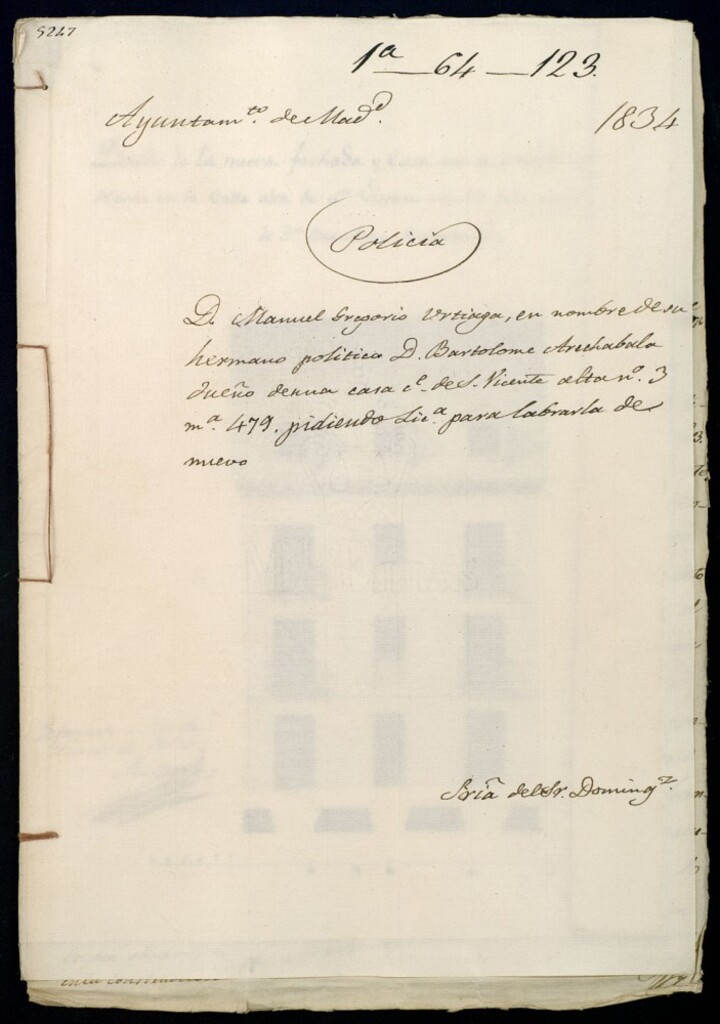 5247
1ª — 64 — 123.
Ayuntam.to de Mad.d 1834
Policía
D. Manuel Gregorio Urtiaga, en nombre de su
hermano politico D. Bartolome Arechabala
dueño de una casa c.e de S. Vicente alta nº. 3
mª. 479. pidiendo Lic.ª para labrarla de
nuevo
Sría del Sr. Doming.z